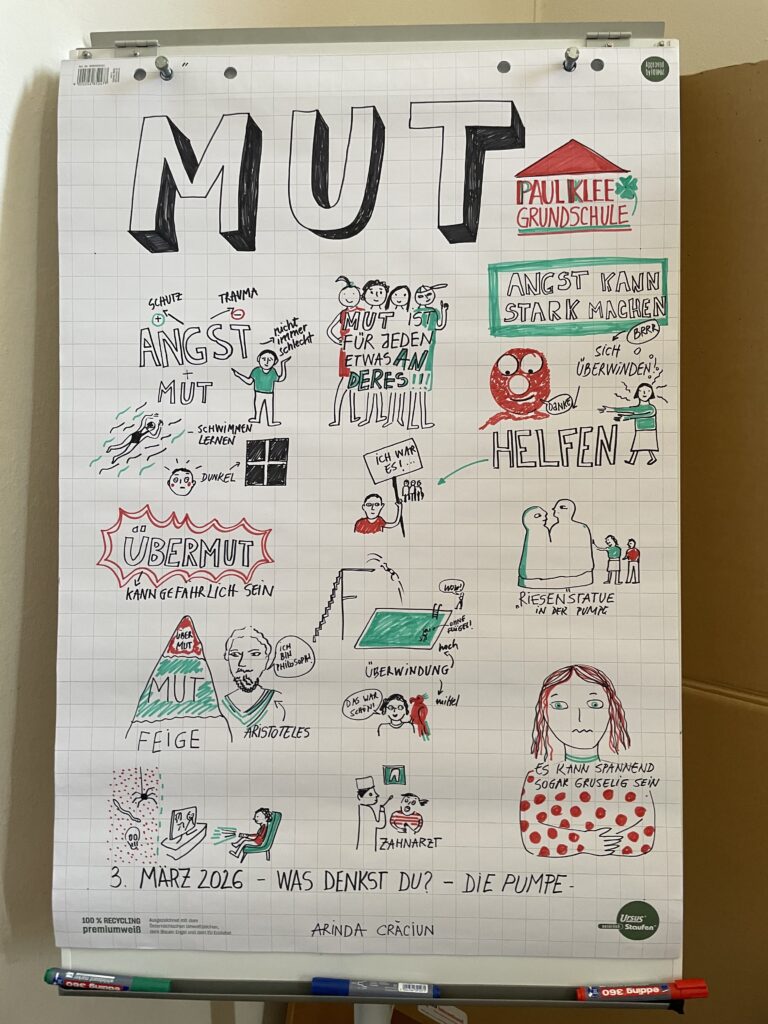 MUT
PAUL KLEE
GRUNDSCHULE
SCHUTZ
TRAUMA
+
-
ANGST
+
MUT
nicht
immer
schlecht
SCHWIMMEN
LERNEN
DUNKEL
MUT IST
FÜR JEDEN
ETWAS AN
DERES!!!
ANGST KANN
STARK MACHEN
BRRR
SICH
ÜBERWINDEN!
DANKE
HELFEN
ICH WAR
ES!...
ÜBERMUT
KANN GEFÄHRLICH SEIN
"RIESENSTATUE
IN DER PUMPE
WOW!
OHNE
hoch
ÜBERWINDUNG
mittel
DAS WAR
SCHÖN!
ÜBER
MUT
MUT
FEIGE
ICH
BIN
PHILOSOPH!
ARISTOTELES
ES KANN SPANNEND
SOGAR GRUSELIG SEIN
ZAHNARZT
3. MÄRZ 2026 - WAS DENKST DU? - DIE PUMPE -
ARINDA CRĂCIUN
100 % RECYCLING
premiumweiß
Ausgezeichnet mit dem
Österreichischen Umweltzeichen,
dem Blauen Engel und dem EU Ecolabel
Ursus
Staufen
edding 360
edding 360